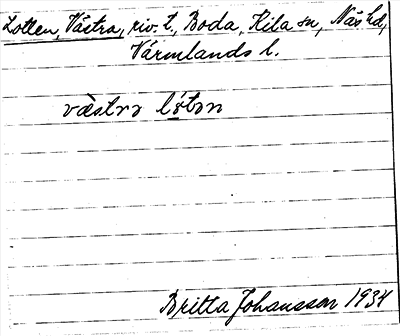 Lotten, Västra, riv. t., Boda, Kila sn, Näs hd,
Värmlands l.
væ̀strə lótən
Britta Johansson 1934